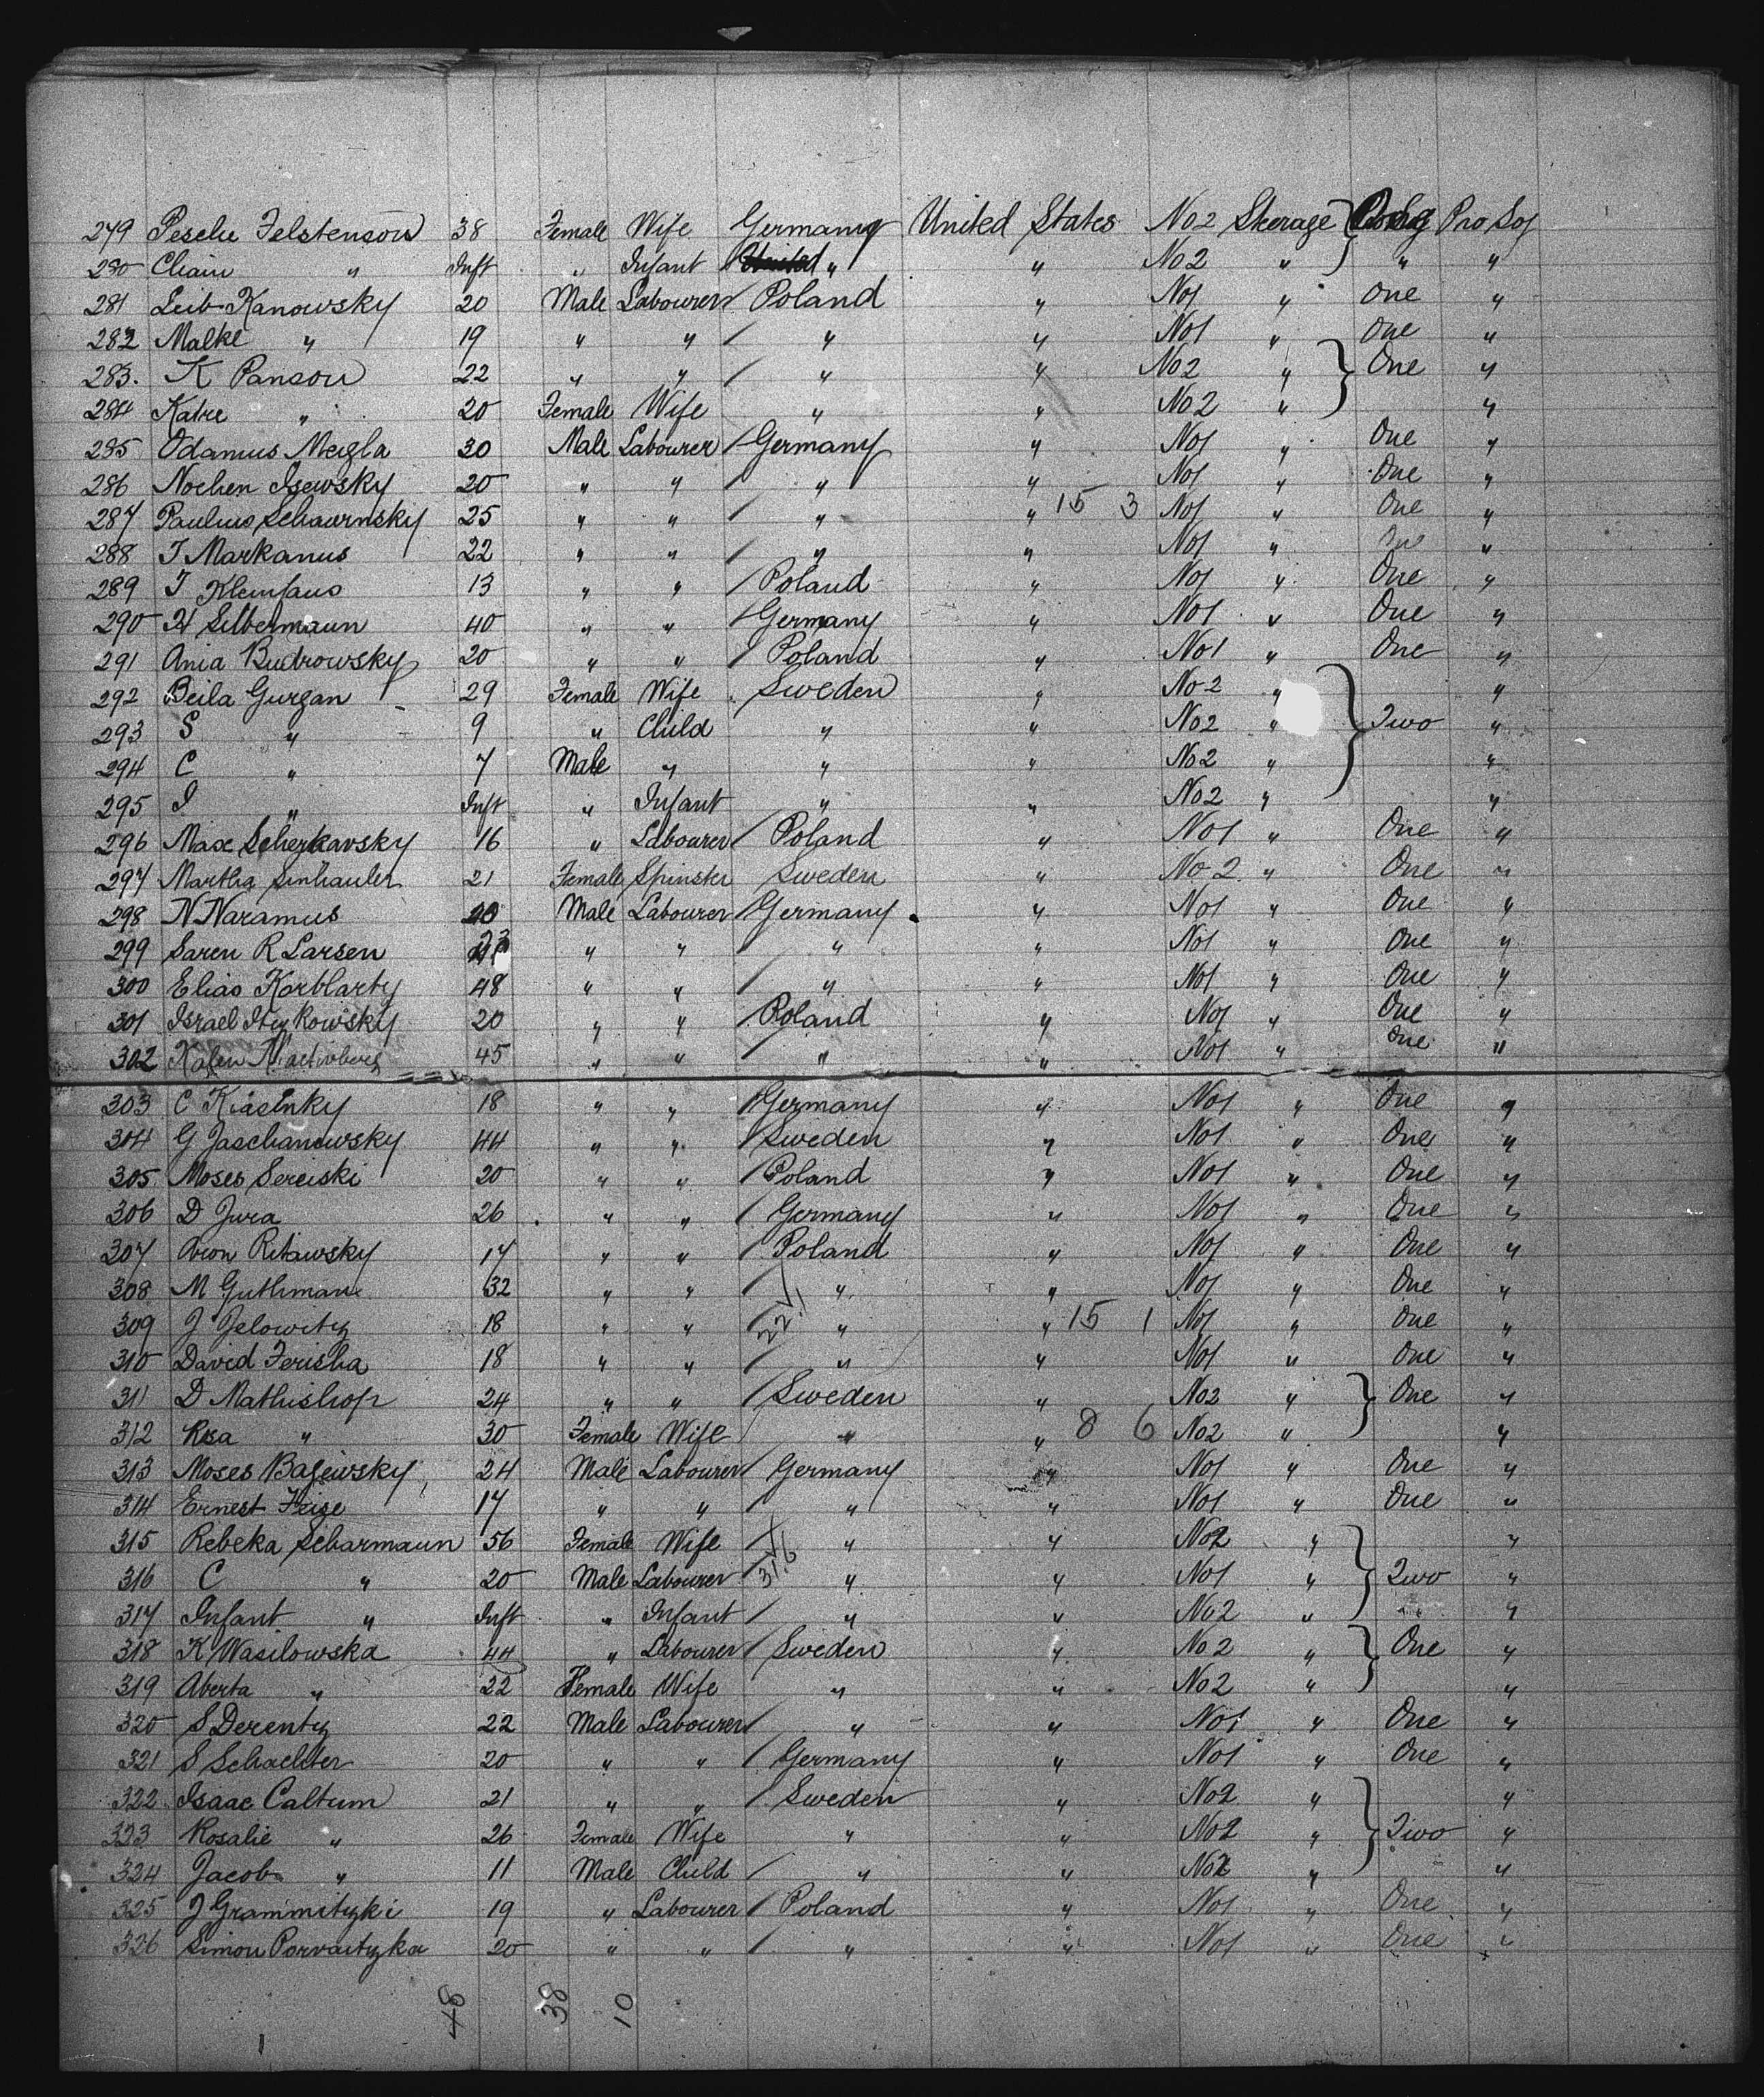 279 Peschc Felstenson 38 Female Wife Germany United States No2 Steerage Pro Soj
280 Chain " Inft " Infant " " No2 " " "
281 Leib Kanowsky 20 Male Labourer Poland " No1 " One "
282 Malke " 19 " " " " No1 " One "
283. K Panson 22 " " " " No2 " One "
284 Katre " 20 Female Wife " " No2 " "
285 Odamus Megla 30 Male Labourer Germany " No1 " One "
286 Nochen Isewsky 20 " " " " No1 " One "
287 Paulius Schawrnsky 25 " " " " 15 3 No1 " One "
288 T Markanus 22 " " " " No1 " One "
289 T Klemfaus 13 " " Poland " No1 " One "
290 H Silbermann 40 " " Germany " No1 " One "
291 Ania Budrowsky 20 " " Poland " No1 " One "
292 Beila Gurgan 29 Female Wife Sweden " No2 " "
293 S " 9 " Child " " No2 " Two "
294 C " 7 Male " " " No2 " "
295 I " Inft " Infant " " No2 " "
296 Max Scherkavsky 16 " Labourer Poland " No1 " One "
297 Martha Sinhauler 21 Female Spinster Sweden " No 2 " One "
298 N Naramus 20 Male Labourer Germany " No1 " One "
299 Saren R Larsen 23 " " " " No1 " One "
300 Elias Korblarty 48 " " " " No1 " One "
301 Israel Itzkowsky 20 " " Poland " No1 " One "
302 45 " " " " No1 " One "
303 C Kiasinky 18 " " Germany " No1 " One "
304 G Jaschanowsky 44 " " Sweden " No1 " One "
305 Moses Sereiski 20 " " Poland " No1 " One "
306 D Jura 26 " " Germany " No1 " One "
307 Aron Ritawsky 17 " " Poland " No1 " One "
308 M Guthman 32 " " " " No1 " One "
309 J Jelowitz 18 " " 22.1 " " 15 1 No1 " One "
310 David Ferisha 18 " " " " No1 " One "
311 D Mathishop 24 " " Sweden " No2 " One "
312 Rosa " 30 Female Wife " " 8 6 No2 " "
313 Moses Bajewsky 24 Male Labourer Germany " No1 " One "
314 Ernest Feige 17 " " " " No1 " One "
315 Rebeka Scharmann 56 Female Wife " " No2 " "
316 C " 20 Male Labourer 31.6 " " No1 " Two "
317 Infant " Inft " Infant " " No2 " "
318 K Wasilowska 44 " Labourer Sweden " No2 " One "
319 Aberta " 22 Female Wife " " No2 " "
320 S Derenty 22 Male Labourer " " No1 " One "
321 S Schachter 20 " " Germany " No1 " One "
322 Isaac Caltum 21 " " Sweden " No2 " "
323 Rosalie " 26 Female Wife " " No2 " Two "
324 Jacob " 11 Male Child " " No2 " "
325 J Grammitzki 19 " Labourer Poland " No1 " One "
326 Simon Porvaitzka 20 " " " " No1 " One "
48 38 10